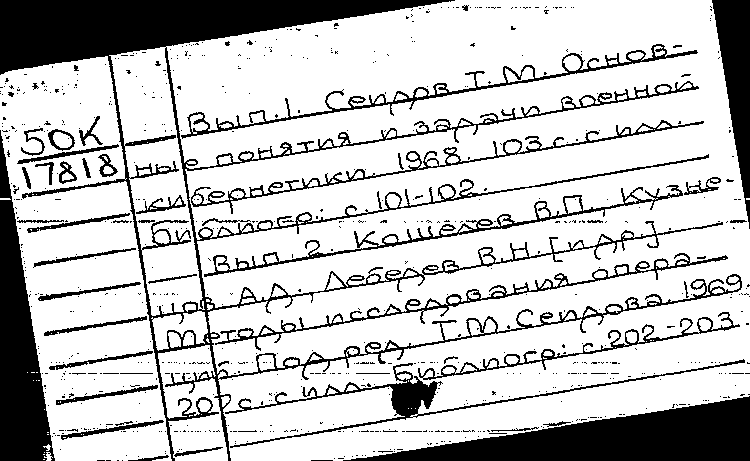 50К
17818
Вып.1. Сеидов Т.М. Основ-
ные понятия и задачи военной
кибернетики. 1968. 103 с. с илл.
Библиогр: с. 101-102.
Вып. 2. Кошелев В.П., Кузне-
цов А.Д., Лебедев В.Н. [и др.].
Методы исследования опера-
ций. Под ред. Т.М. Сеидова. 1969.
207 с. с илл. Библиогр: с. 202-203.